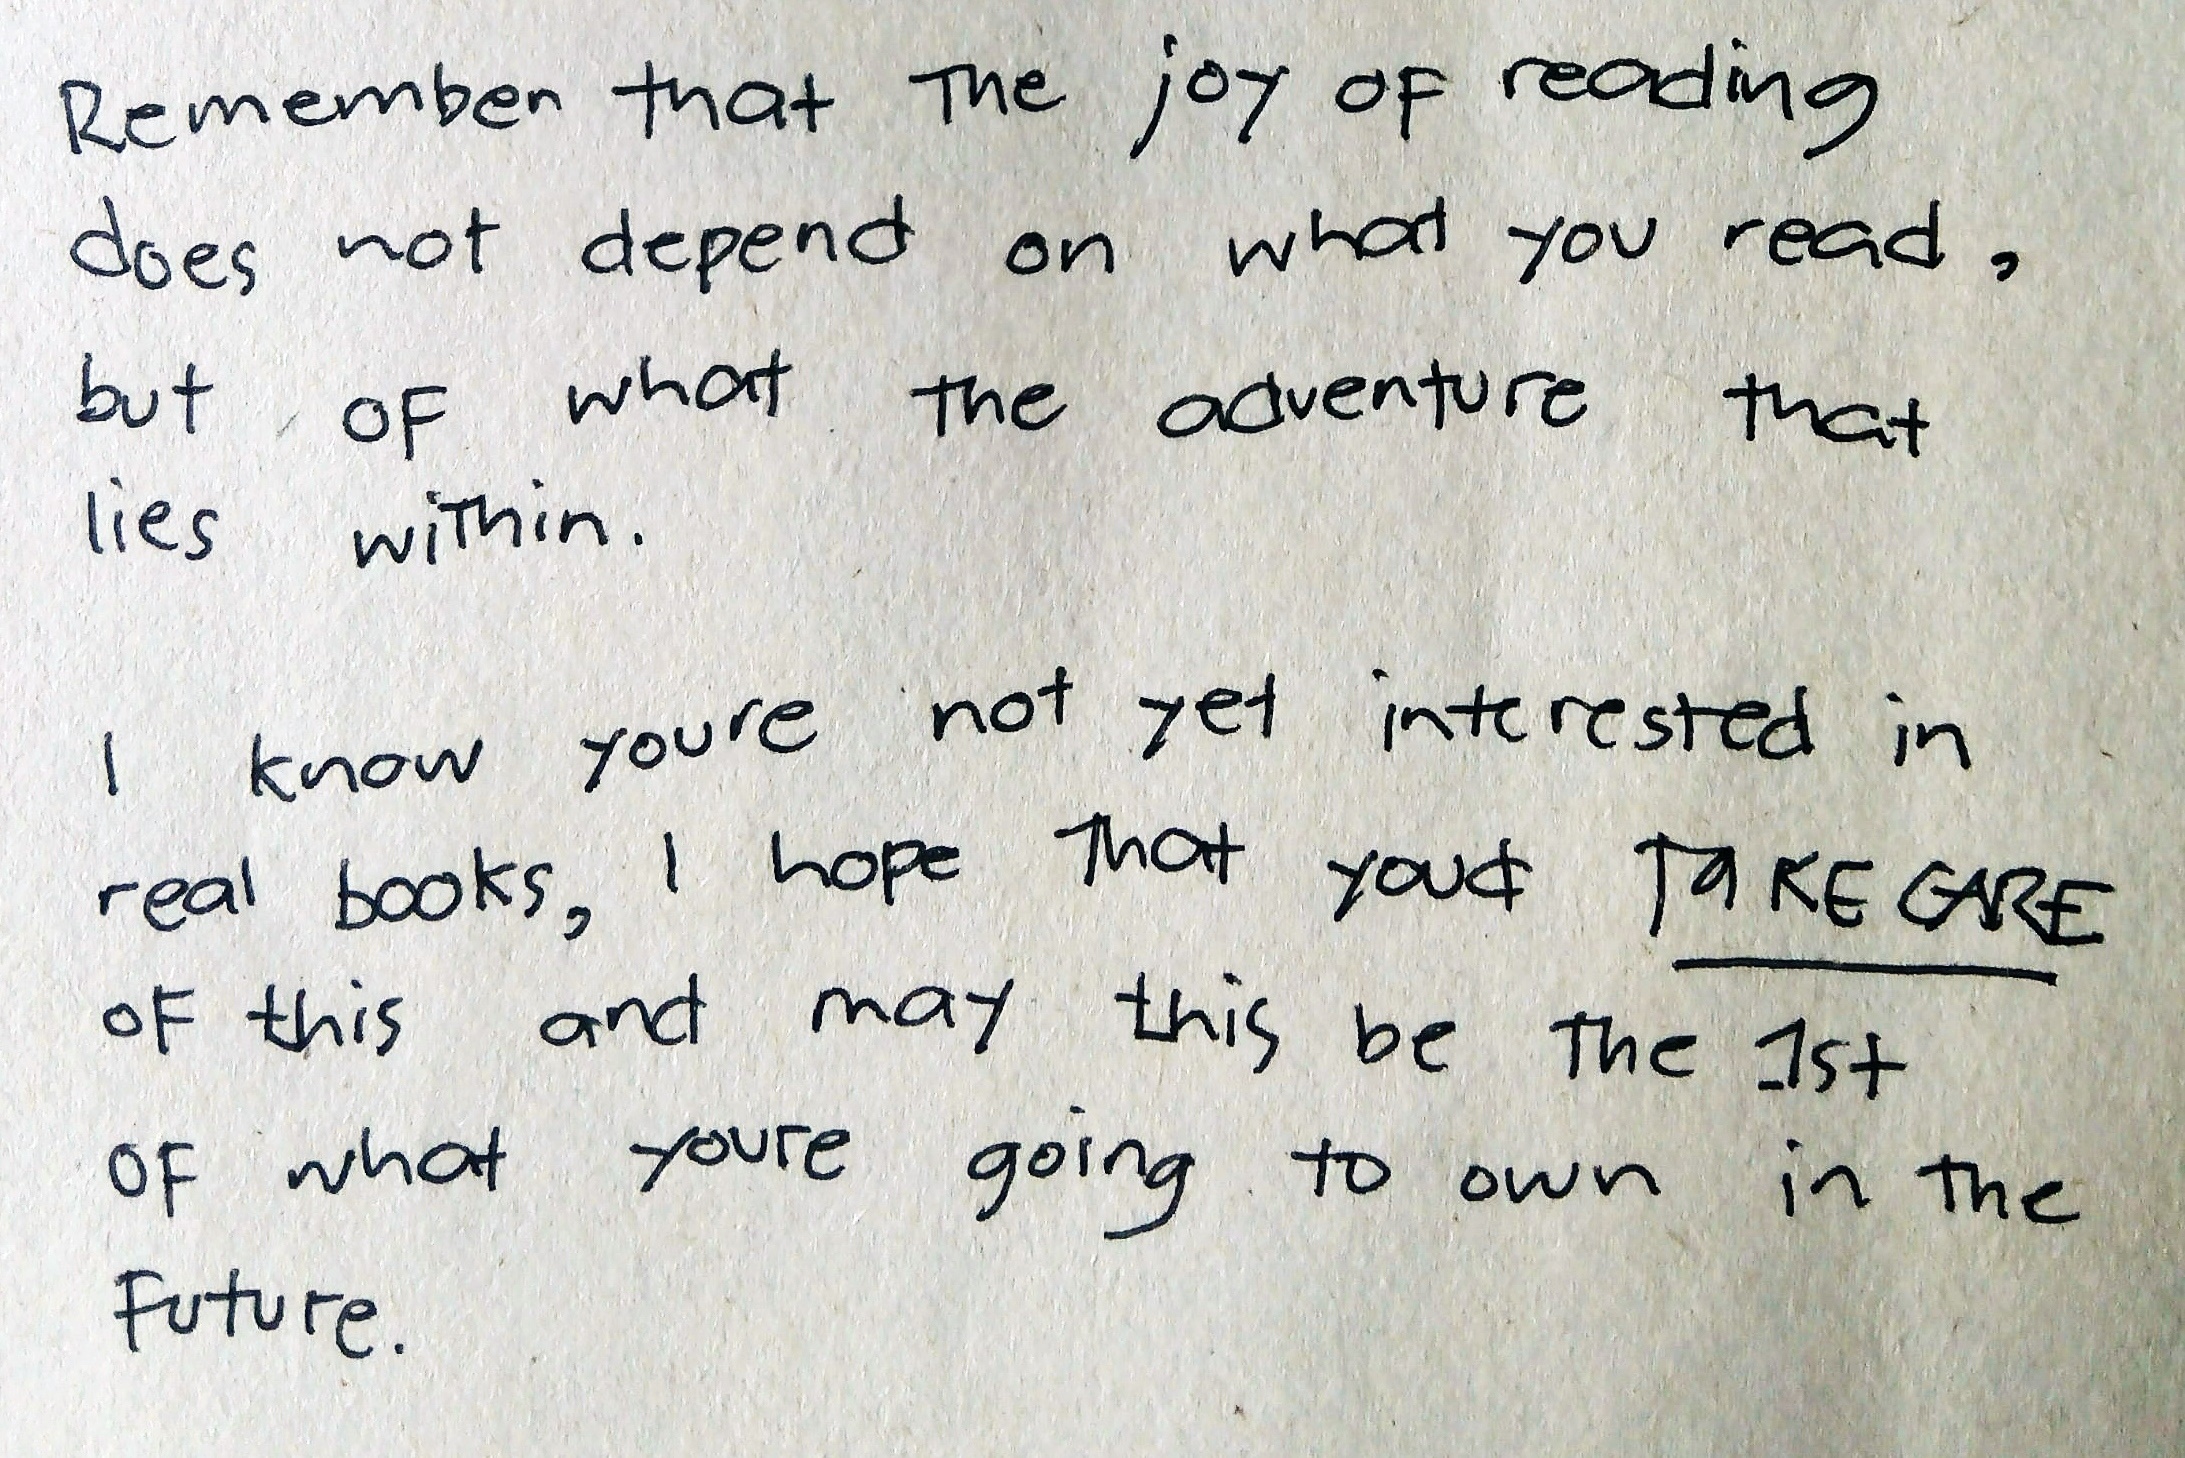 Remember that the joy of reading
does not depend on what you read,
but of what the adventure that
lies within.
I know youre not yet interested in
real books, I hope that youd TAKE CARE
of this and may this be the 1st
of what youre going to own in the
Future.